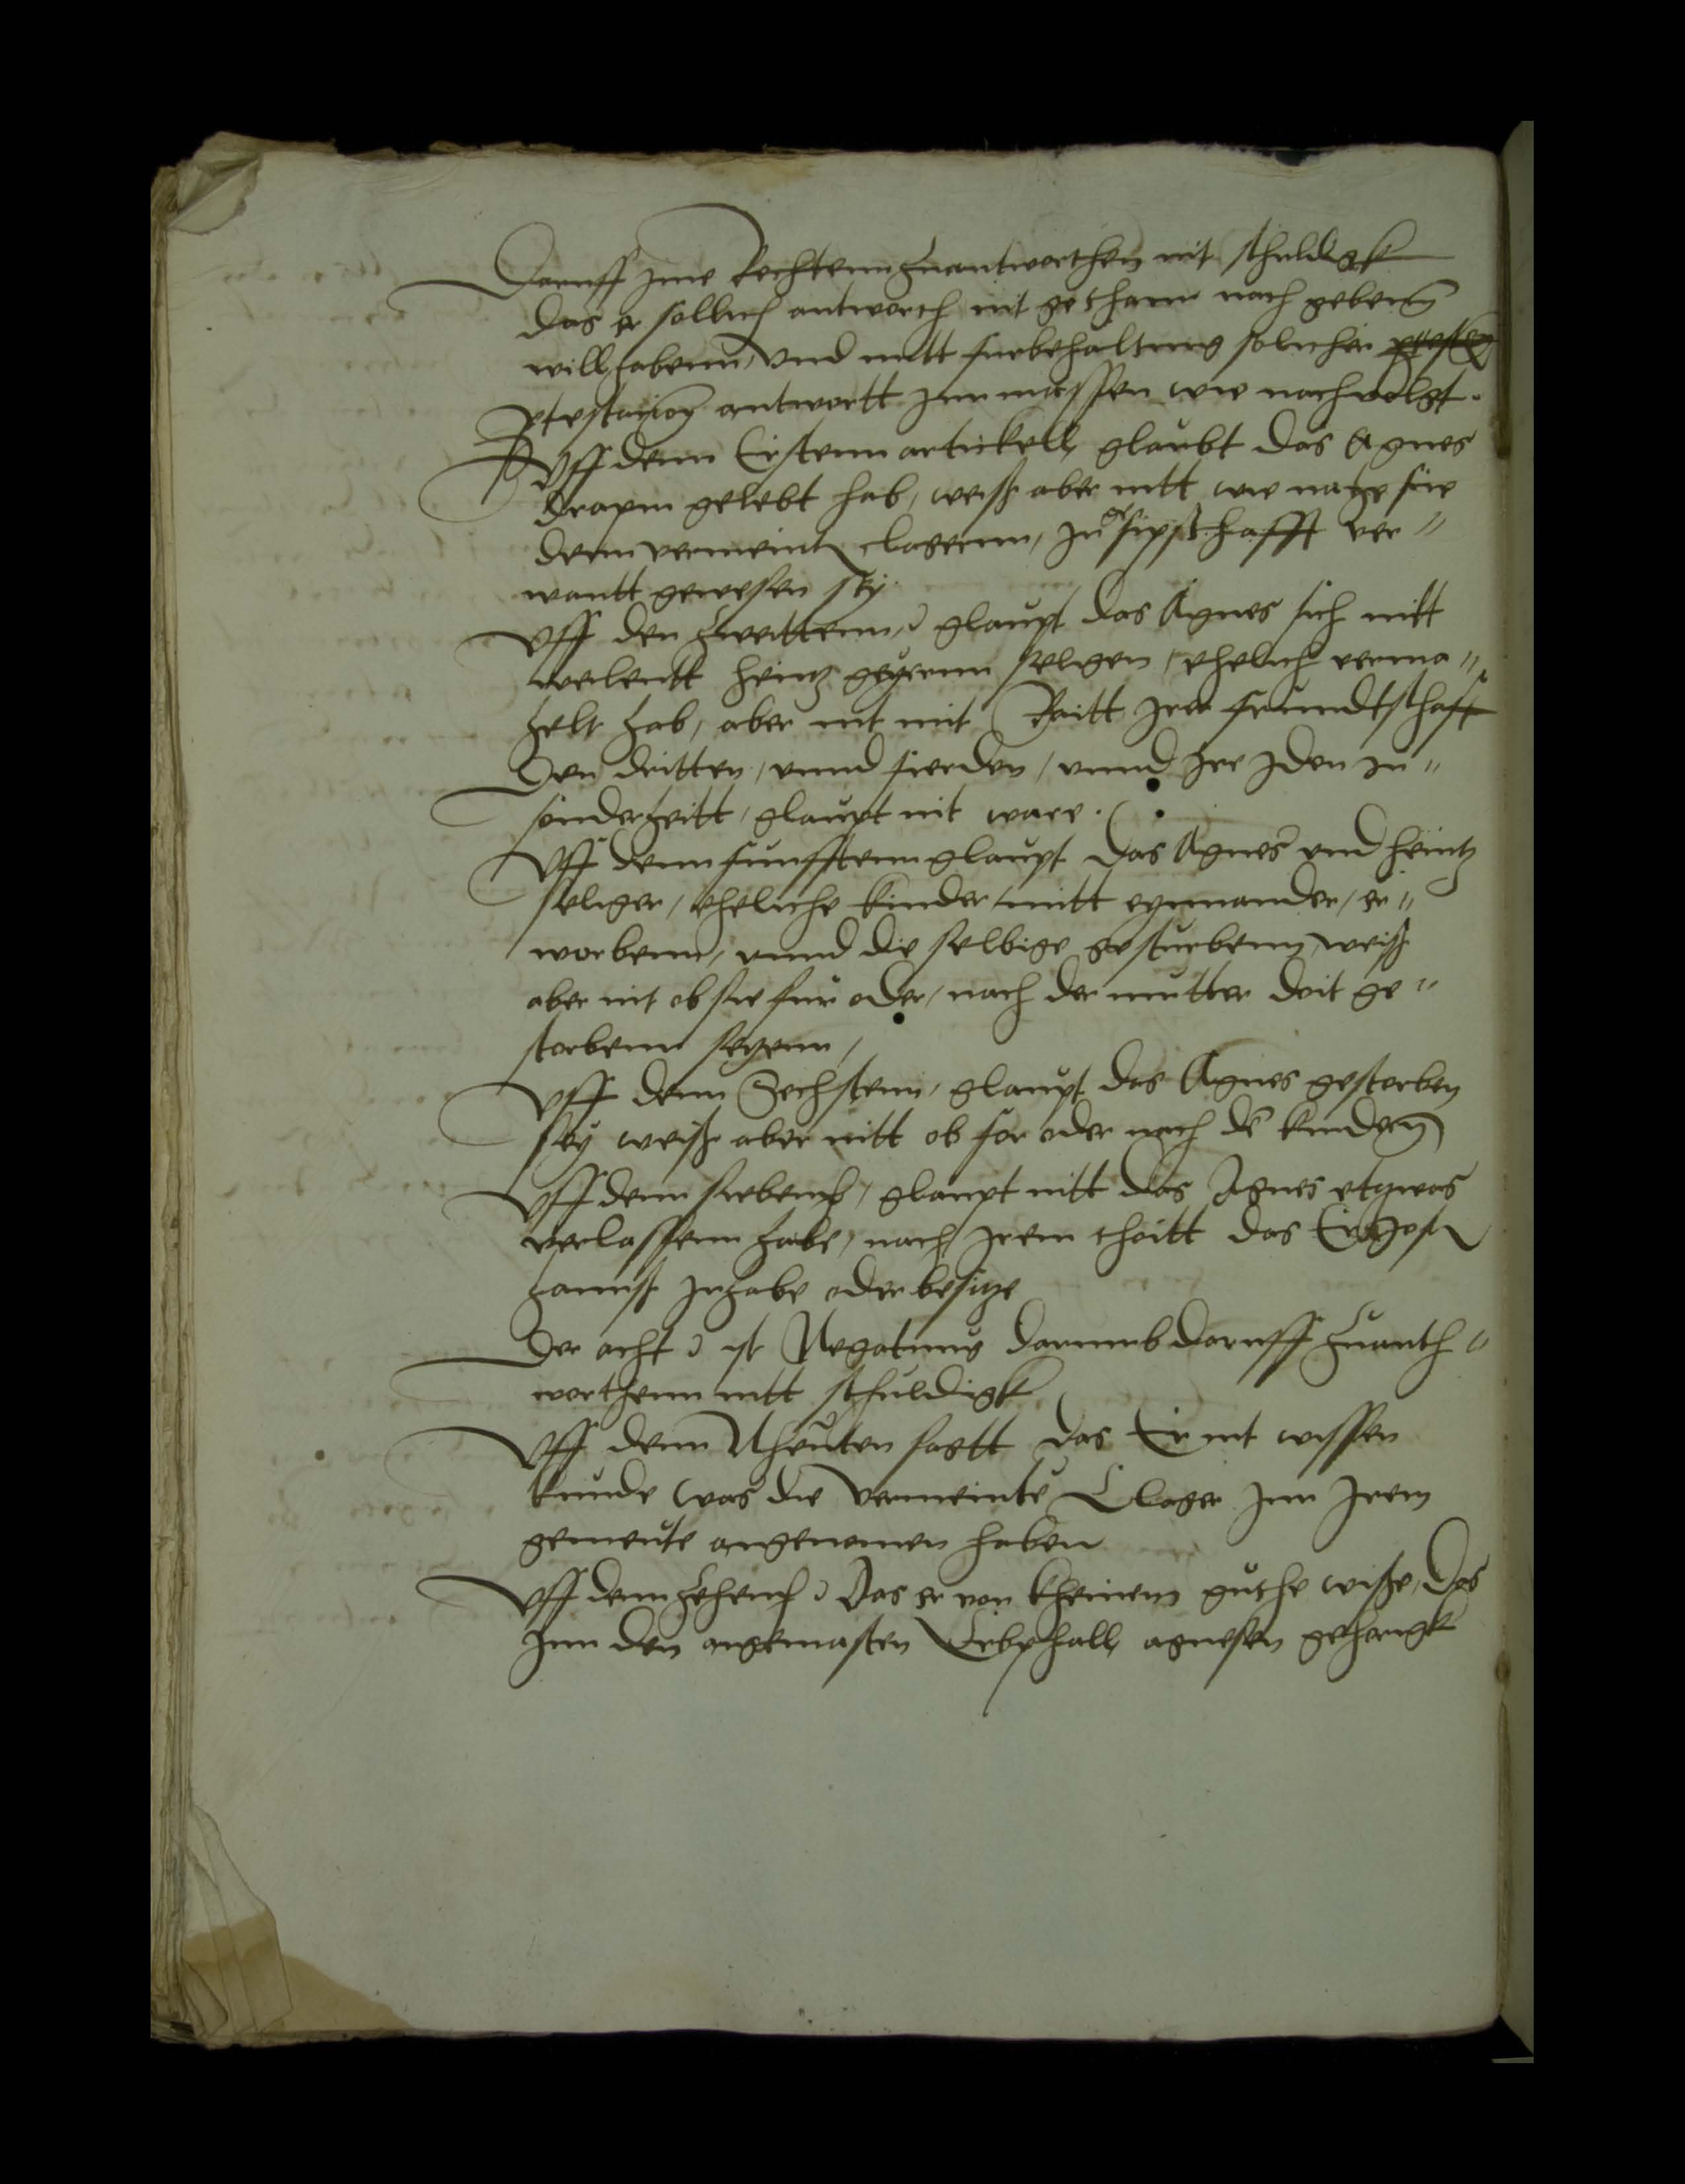 Daruff jme Rechtenn zuantworthen nit schuldigk
das er sollich antworth nit gethann noch gebenn
will habenn, vnd mitt furbehaltung solicher
ptestacion antwortt jnn massen wie nachvolgt.
Vff denn Erstenn artickell, glaubt das Agnes
gelebt hab, weiß aber nitt wie nahe sie
denn vermeintn clagernn, zu sipschafft ver"
wantt gewesen sey
Vff den zweittenn, glaupt das Agnes sich mitt
weilentt heintz seligen, ehelich verma"
helt hab, aber nit mit Raitt jrer freundtschafft
Den dritten, vnnd fierden, vnnd jre jden jn"
sonderheitt, glaupt nit ware.
Vff denn funfftenn glaupt das Agnes vnd heintz
seliger, eheliche kinder mitt eynnander, er"
worbenn, vnnd die selbige gesturbenn, weiß
aber nit ob sie fur oder, nach der mutter doit ge"
storbenn seyenn,
Vff denn Sechstenn, glaupt das Agnes gestorben
sey weiß aber nitt ob for oder nach den kindern
Vff denn siebend, glaupt nitt das Agnes etzwas
verlassenn habe, nach jrem thoitt das
hanns jnhabe oder besitze
Der acht ist Negatiuus darumb daruff zuanth"
worthenn nitt schuldigk
Vff denn Nheuten sagtt das Er nit wissen
kunde was die vermeinte Clager jnn jrem
gemeute angenomen haben
Vff denn zehend Das er von kheinem guthe wisse, das
jnn den angemasten Erbphall, agnesen gehorigk